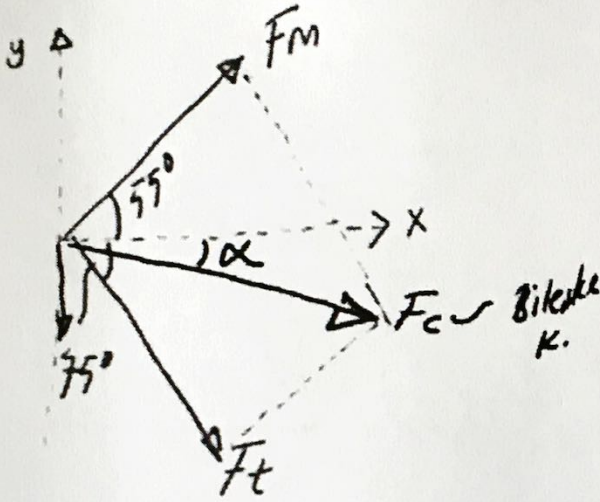 y
Fm
55°
x
α
Fc
Bileske
K.
75°
Ft